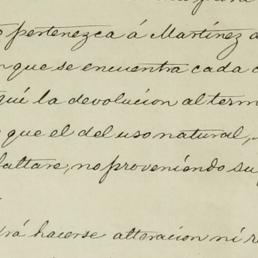 pertenezca á Martinez
que se encuentra cada
la devolucion al term
que el del uso natural,
faltare, no proveniendo su
rá hacerse alteracion ni r